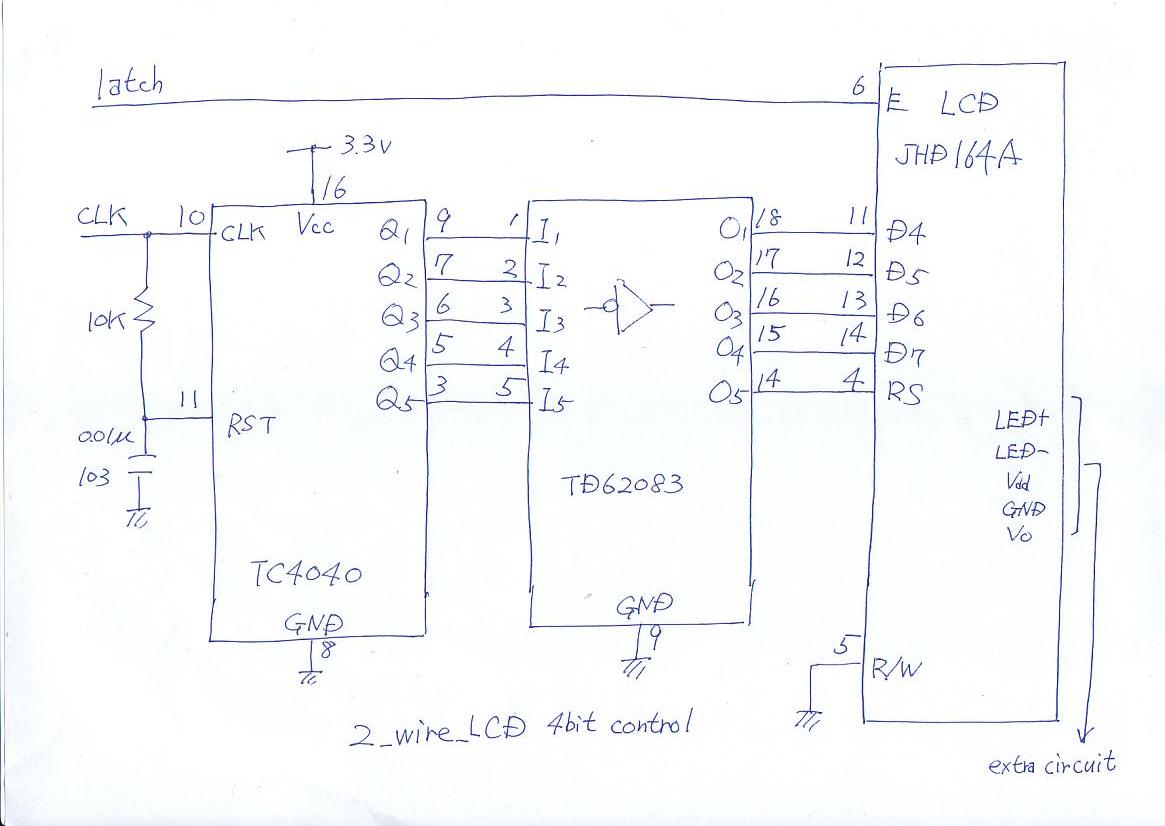 latch
6
E LCD
JHD164A
3.3V
16
CLK
10
CLK
Vcc
Q1 9 1 I1
Q2 7 2 I2
Q3 6 3 I3
Q4 5 4 I4
Q5 3 5 I5
O1 18 11 D4
O2 17 12 D5
O3 16 13 D6
O4 15 14 D7
O5 14 4 RS
10K
11
RST
0.01μ
103
TD62083
LED+
LED-
Vdd
GND
Vo
TC4040
GND
8
GND
9
5
R/W
2_wire_LCD 4bit control
extra circuit